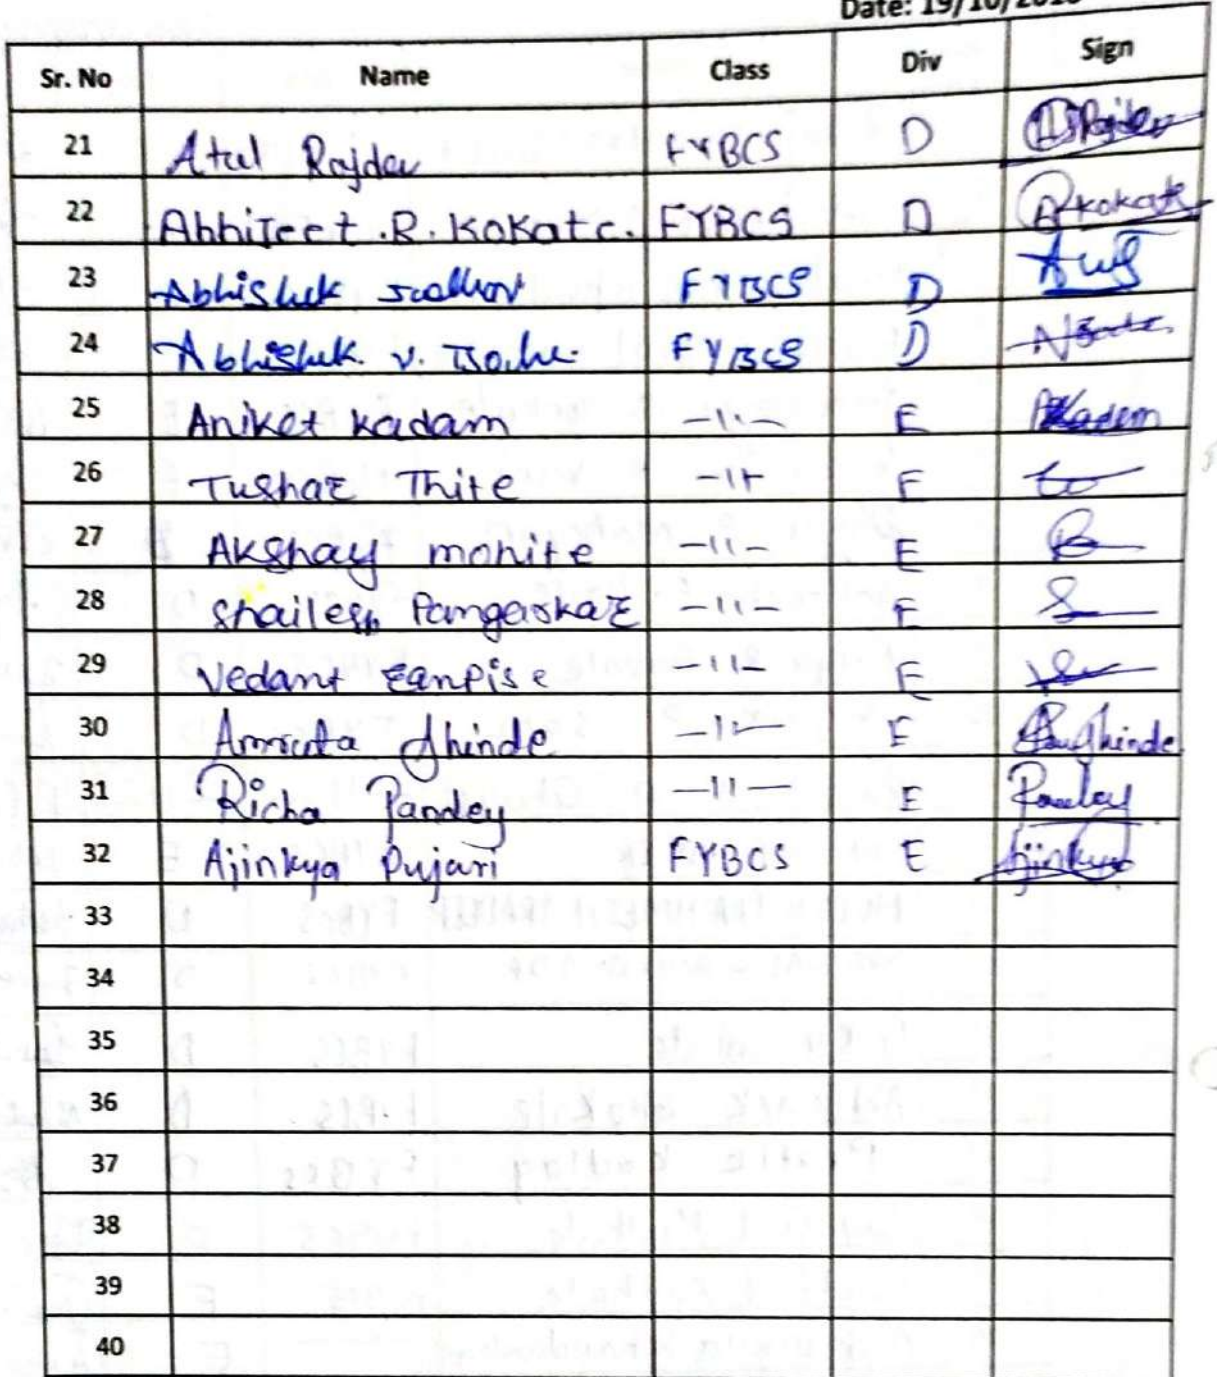 Date: 19/10/
Sr. No Name Class Div Sign
21 Atul Rajdev FYBCS D Rajdev
22 Abhijeet .R. Kokate. FYBCS D Akokate
23 Abhishek FYBCS D
24 Abhishek. v. FYBCS D
25 Aniket Kadam -11- E AKadam
26 Tushar Thite -11- E
27 Akshay mohite -11- E
28 Shailesh Pangarkar -11- E
29 Vedant Ganpise -11- E
30 Amruta Shinde -11- E Shinde
31 Richa Pandey -11- E Pandey
32 Ajinkya Pujari FYBCS E Ajinkya
33
34
35
36
37
38
39
40